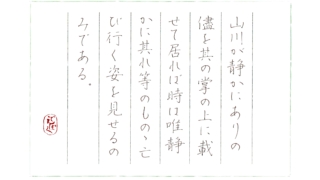 山川が静かにありの
儘を其の掌の上に載
せて居れば時は唯静
かに其れ等のものゝ亡
び行く姿を見せるの
みである。